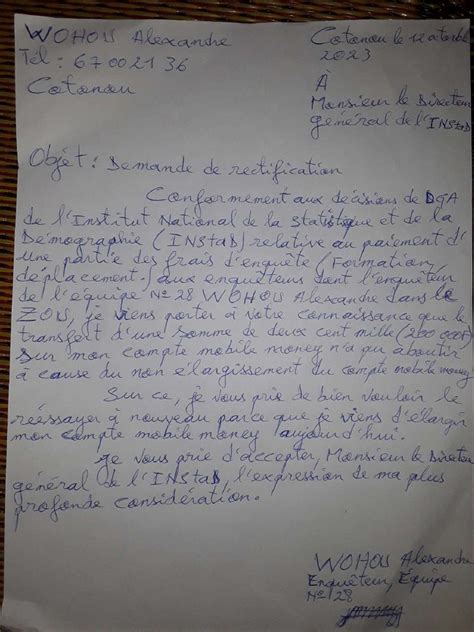 WOHOU Alexandre
Tél : 67002136
Cotonou
Cotonou le 12 octobre
2023
À
Monsieur le Directeur
général de l'INStaD
Objét : Demande de rectification
Conformement aux décisions de DGA
de l'Institut National de la Statistique et de la
Démographie (INStaD) relative au paiement d'
une partie des frais d'enquête (Formation,
déplacement) aux enquêteurs dont l'enquêteur
de l'équipe N° 28 WOHOU Alexandre dans le
ZOU, je viens porter à votre connaissance que le
transfert d'une somme de deux cent mille (200 000F)
sur mon compte mobile money n'a pu aboutir
à cause du non élargissement du compte mobile money
Sur ce, je vous prie de bien vouloir le
réessayer à nouveau parce que je viens d'élargir
mon compte mobile money aujourd'hui.
Je vous prie d'accepter, Monsieur le Directeur
général de l'INStaD, l'expression de ma plus
profonde considération.
WOHOU Alexandre
Enquêteur, Équipe
N° 28